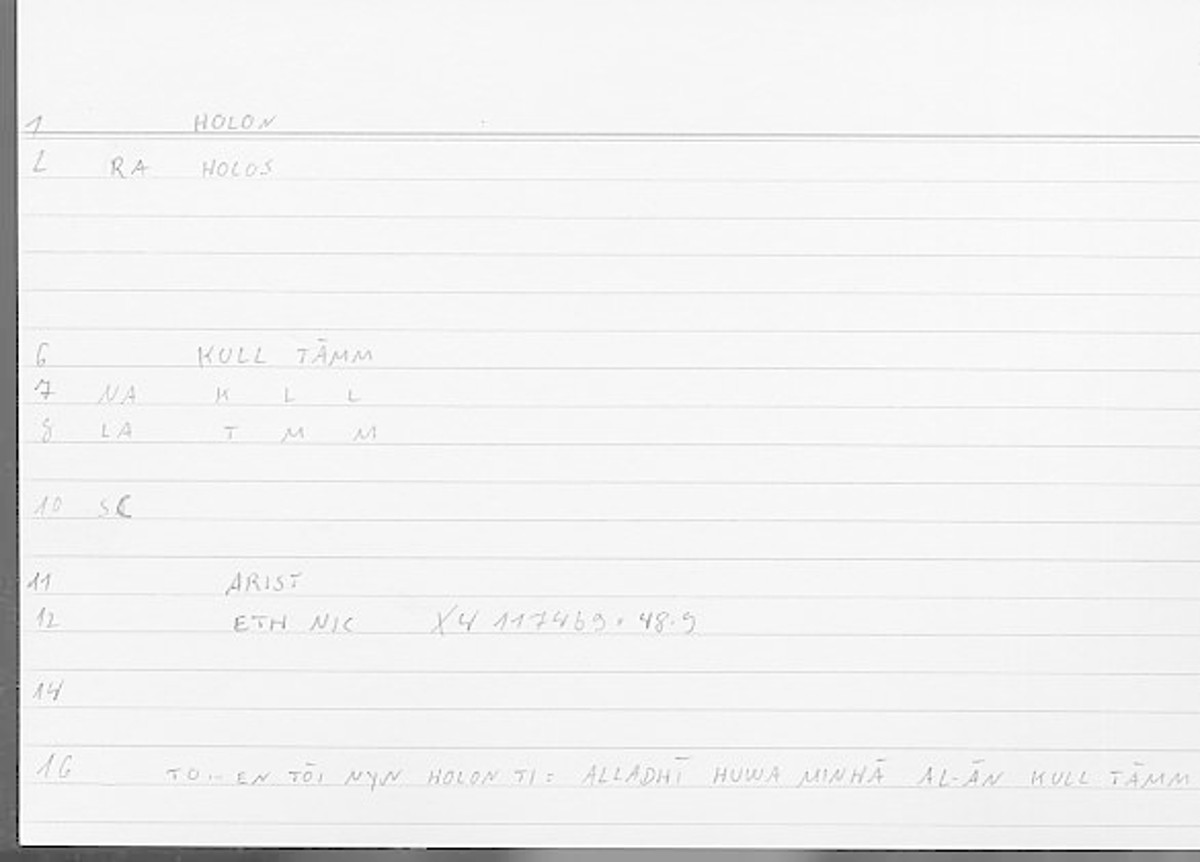 1 HOLON
2 RA HOLOS
6 KULL TĀMM
7 NA K L L
8 LA T M M
10 SC
11 ARIST
12 ETH NIC X4 1174b9 · 48.9
14
16 TO.. EN TŌI NYN HOLON TI : ALLADHĪ HUWA MINHĀ AL-ĀN KULL TĀMM